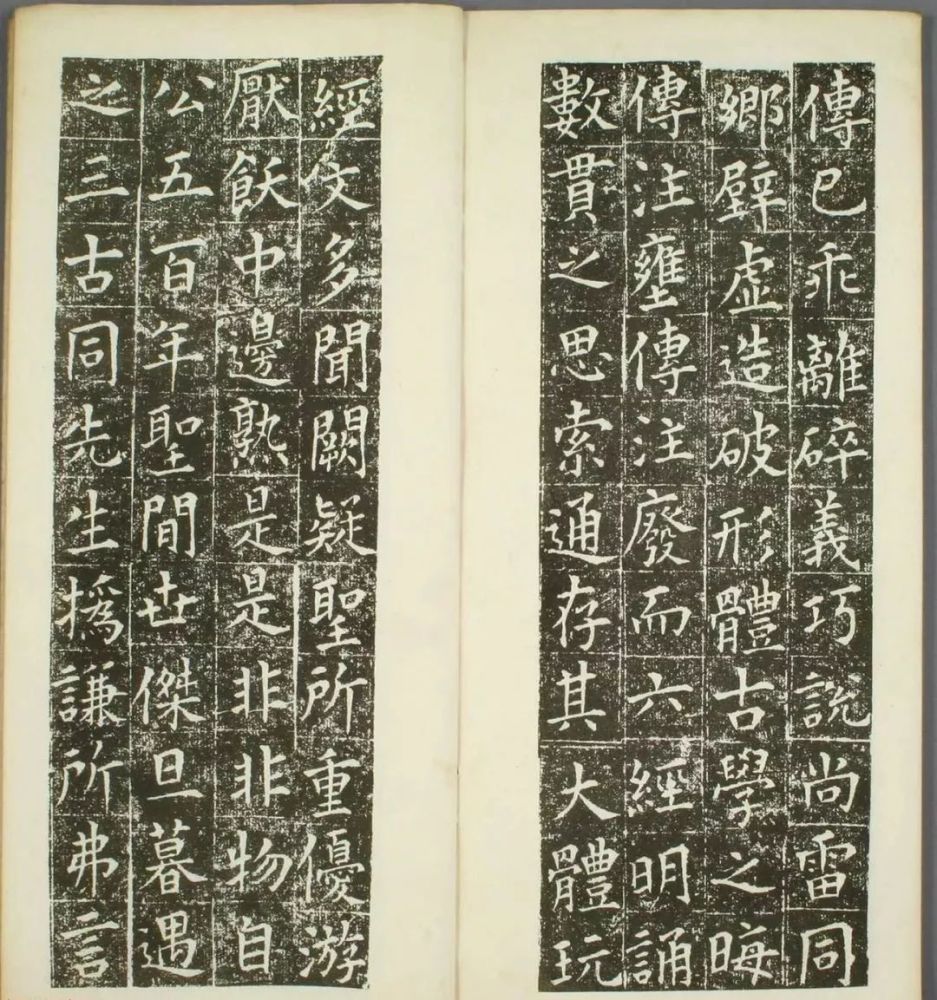 傳已乖離碎義巧說尚雷同
鄉壁虛造破形體古學之晦
傳注壅傳注廢而六經明誦
數貫之思索通存其大體玩
經文多聞闕疑聖所重優游
厭飫中邊孰是是非非物自
公五百年聖間世傑旦暮遇
之三古同先生撝謙所弗言